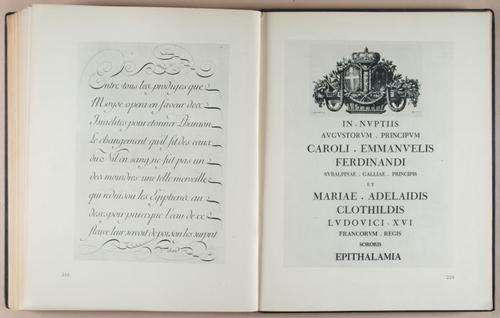 Entre tous les prodiges que
Moyse opera en faveur des
Israelites pour etonner Pharaon
Le changement qu'il fit des eaux
du Nil en sang ne fut pas un
des moindres une telle merveille
qui reduisoit les Egyptiens au
desespoir parceque l'eau de ce
fleuve leur servoit de poison les surprit
IN . NVPTIIS
AVGVSTORVM . PRINCIPVM
CAROLI . EMMANVELIS
FERDINANDI
SVBALPINAE . GALLIAE . PRINCIPIS
ET
MARIAE . ADELAIDIS
CLOTHILDIS
LVDOVICI . XVI
FRANCORVM . REGIS
SORORIS
EPITHALAMIA